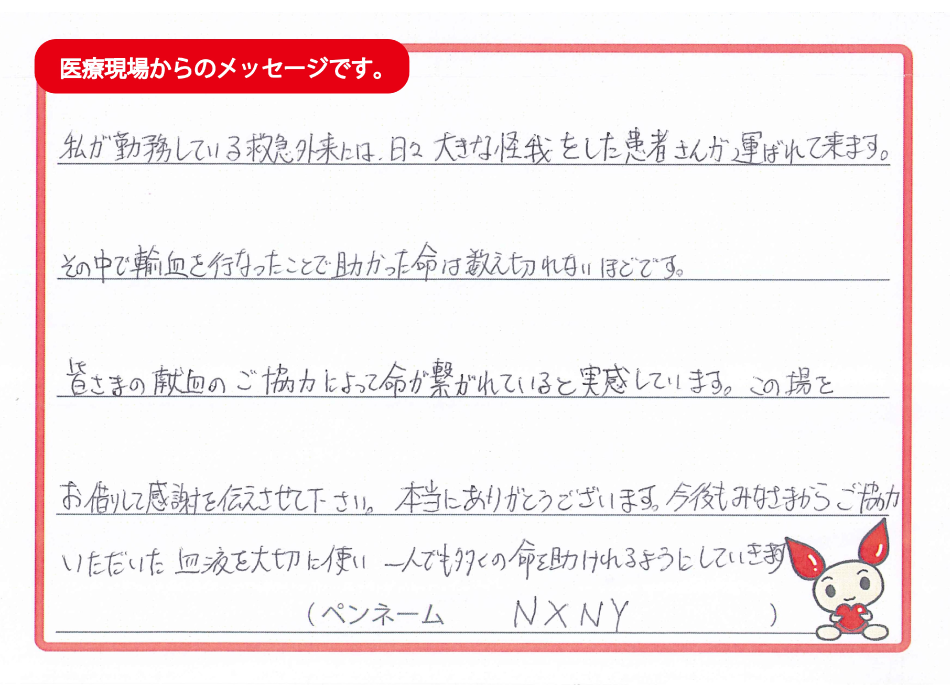 医療現場からのメッセージです。
私が勤務している救急外来には、日々大きな怪我をした患者さんが運ばれて来ます。
その中で輸血を行なったことで助かった命は数え切れないほどです。
皆さまの献血のご協力によって命が繋がれていると実感しています。この場を
お借りして感謝を伝えさせて下さい。本当にありがとうございます。今後もみなさまからご協力
いただいた血液を大切に使い一人でも多くの命を助けれるようにしていきます
(ペンネーム NXNY )